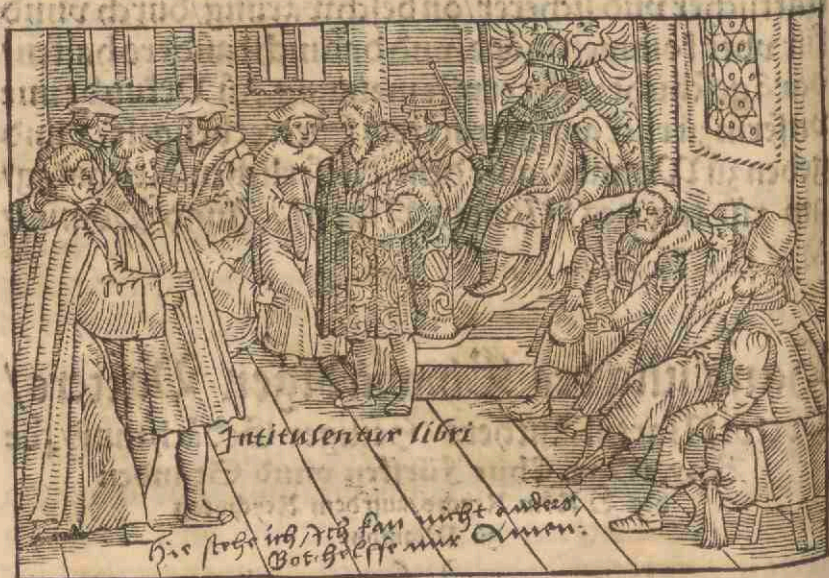 Intitulentur libri
Hie stehe ich / Ich kan nicht anders /
Got helffe mir Amen: